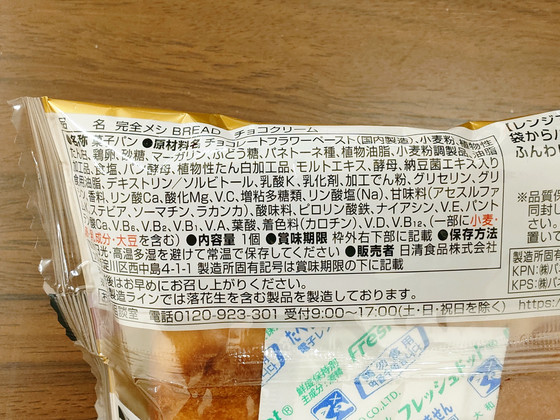 品 名 完全メシ BREAD チョコクリーム
名称 菓子パン ●原材料名 チョコレートフラワーペースト(国内製造)、小麦粉、植物性
たん白、鶏卵、砂糖、マーガリン、ぶどう糖、パネトーネ種、植物油脂、小麦粉調製品、油脂
加工品、食塩、パン酵母、植物性たん白加工品、モルトエキス、酵母、納豆菌エキス入り
食用油脂、デキストリン/ソルビトール、乳酸K、乳化剤、加工でん粉、グリセリン、グリ
香料、リン酸Ca、酸化Mg、V.C、増粘多糖類、リン酸塩(Na)、甘味料(アセスルファム
ステビア、ソーマチン、ラカンカ)、酸味料、ピロリン酸鉄、ナイアシン、V.E、パント
酸Ca、V.B₆、V.B₂、V.B₁、V.A、葉酸、着色料(カロチン)、V.D、V.B₁₂、(一部に小麦・
成分・大豆を含む) ●内容量 1個 ●賞味期限 枠外右下部に記載 ●保存方法
光・高温多湿を避けて常温で保存してください ●販売者 日清食品株式会社
淀川区西中島4-1-1 製造所固有記号は賞味期限の下に記載
後はお早めにお召し上がりください。
製造ラインでは落花生を含む製品を製造しております。
談室 0120-923-301 受付9:00~17:00(土・日・祝日を除く)
https
(レンジ
袋から
ふんわり
※品質保
同封し
製造所固有
KPN:
KPS:
たべ
電子レン
Fresh
鮮度保持剤
主成分:酒精
CO.,LTD.
フレッシュドット
ません